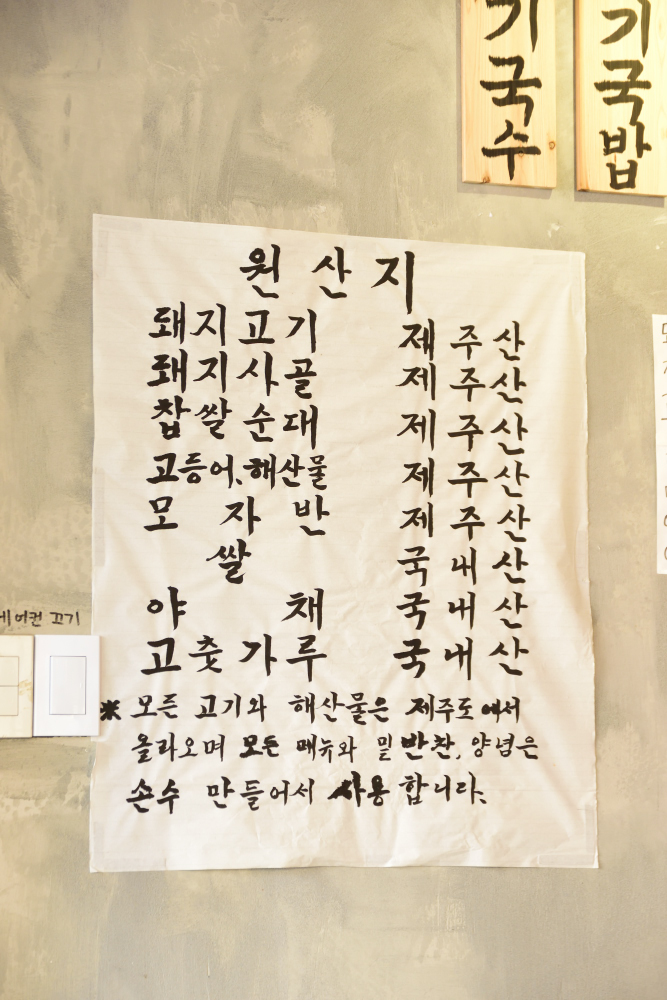 기국수
기국밥
원산지
돼지고기 제주산
돼지사골 제주산
찹쌀순대 제주산
고등어,해산물 제주산
모자반 제주산
쌀 국내산
야채 국내산
고춧가루 국내산
※ 모든 고기와 해산물은 제주도에서
올라오며 모든 메뉴와 밑반찬, 양념은
손수 만들어서 사용합니다.
에어컨 끄기